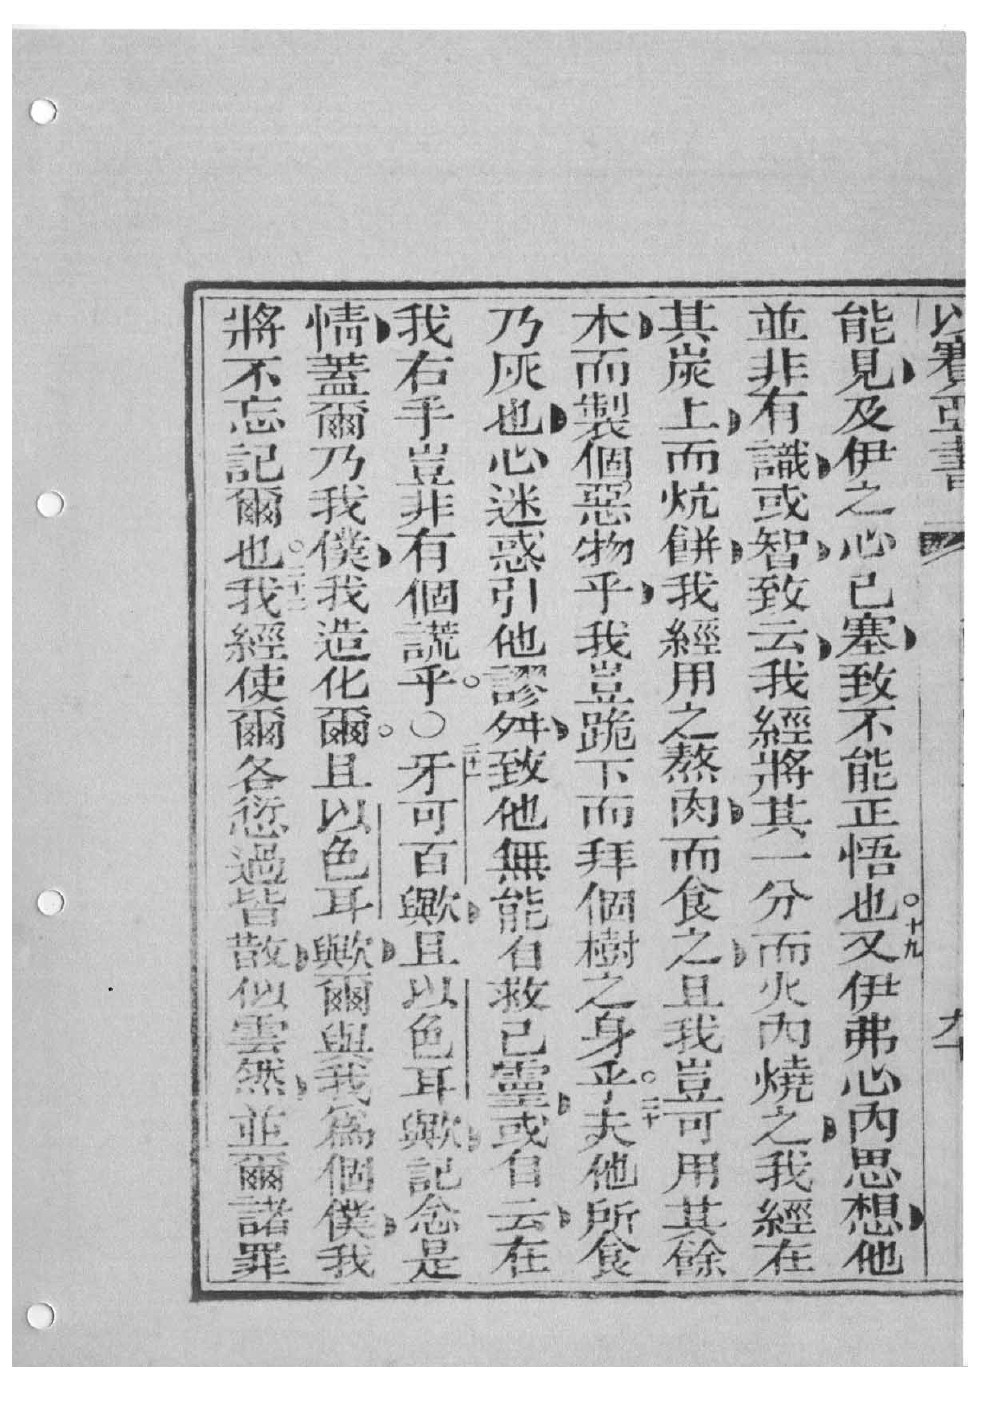 以賽亞書
能見及伊之心已塞致不能正悟也。十九又伊弗心內思想他
並非有識或智致云我經將其一分而火內燒之我經在
其炭上而炕餅我經用之熬肉而食之且我豈可用其餘
木而製個惡物乎我豈跪下而拜個樹之身乎。二十夫他所食
乃灰也心迷惑引他謬舛致他無能自救己靈或自云在
我右手豈非有個謊乎。〇二十一牙可百歟且以色耳歟記念是
情蓋爾乃我僕我造化爾。且以色耳歟爾與我為個僕我
將不忘記爾也。二十二我經使爾各愆過皆散似雲然並爾諸罪